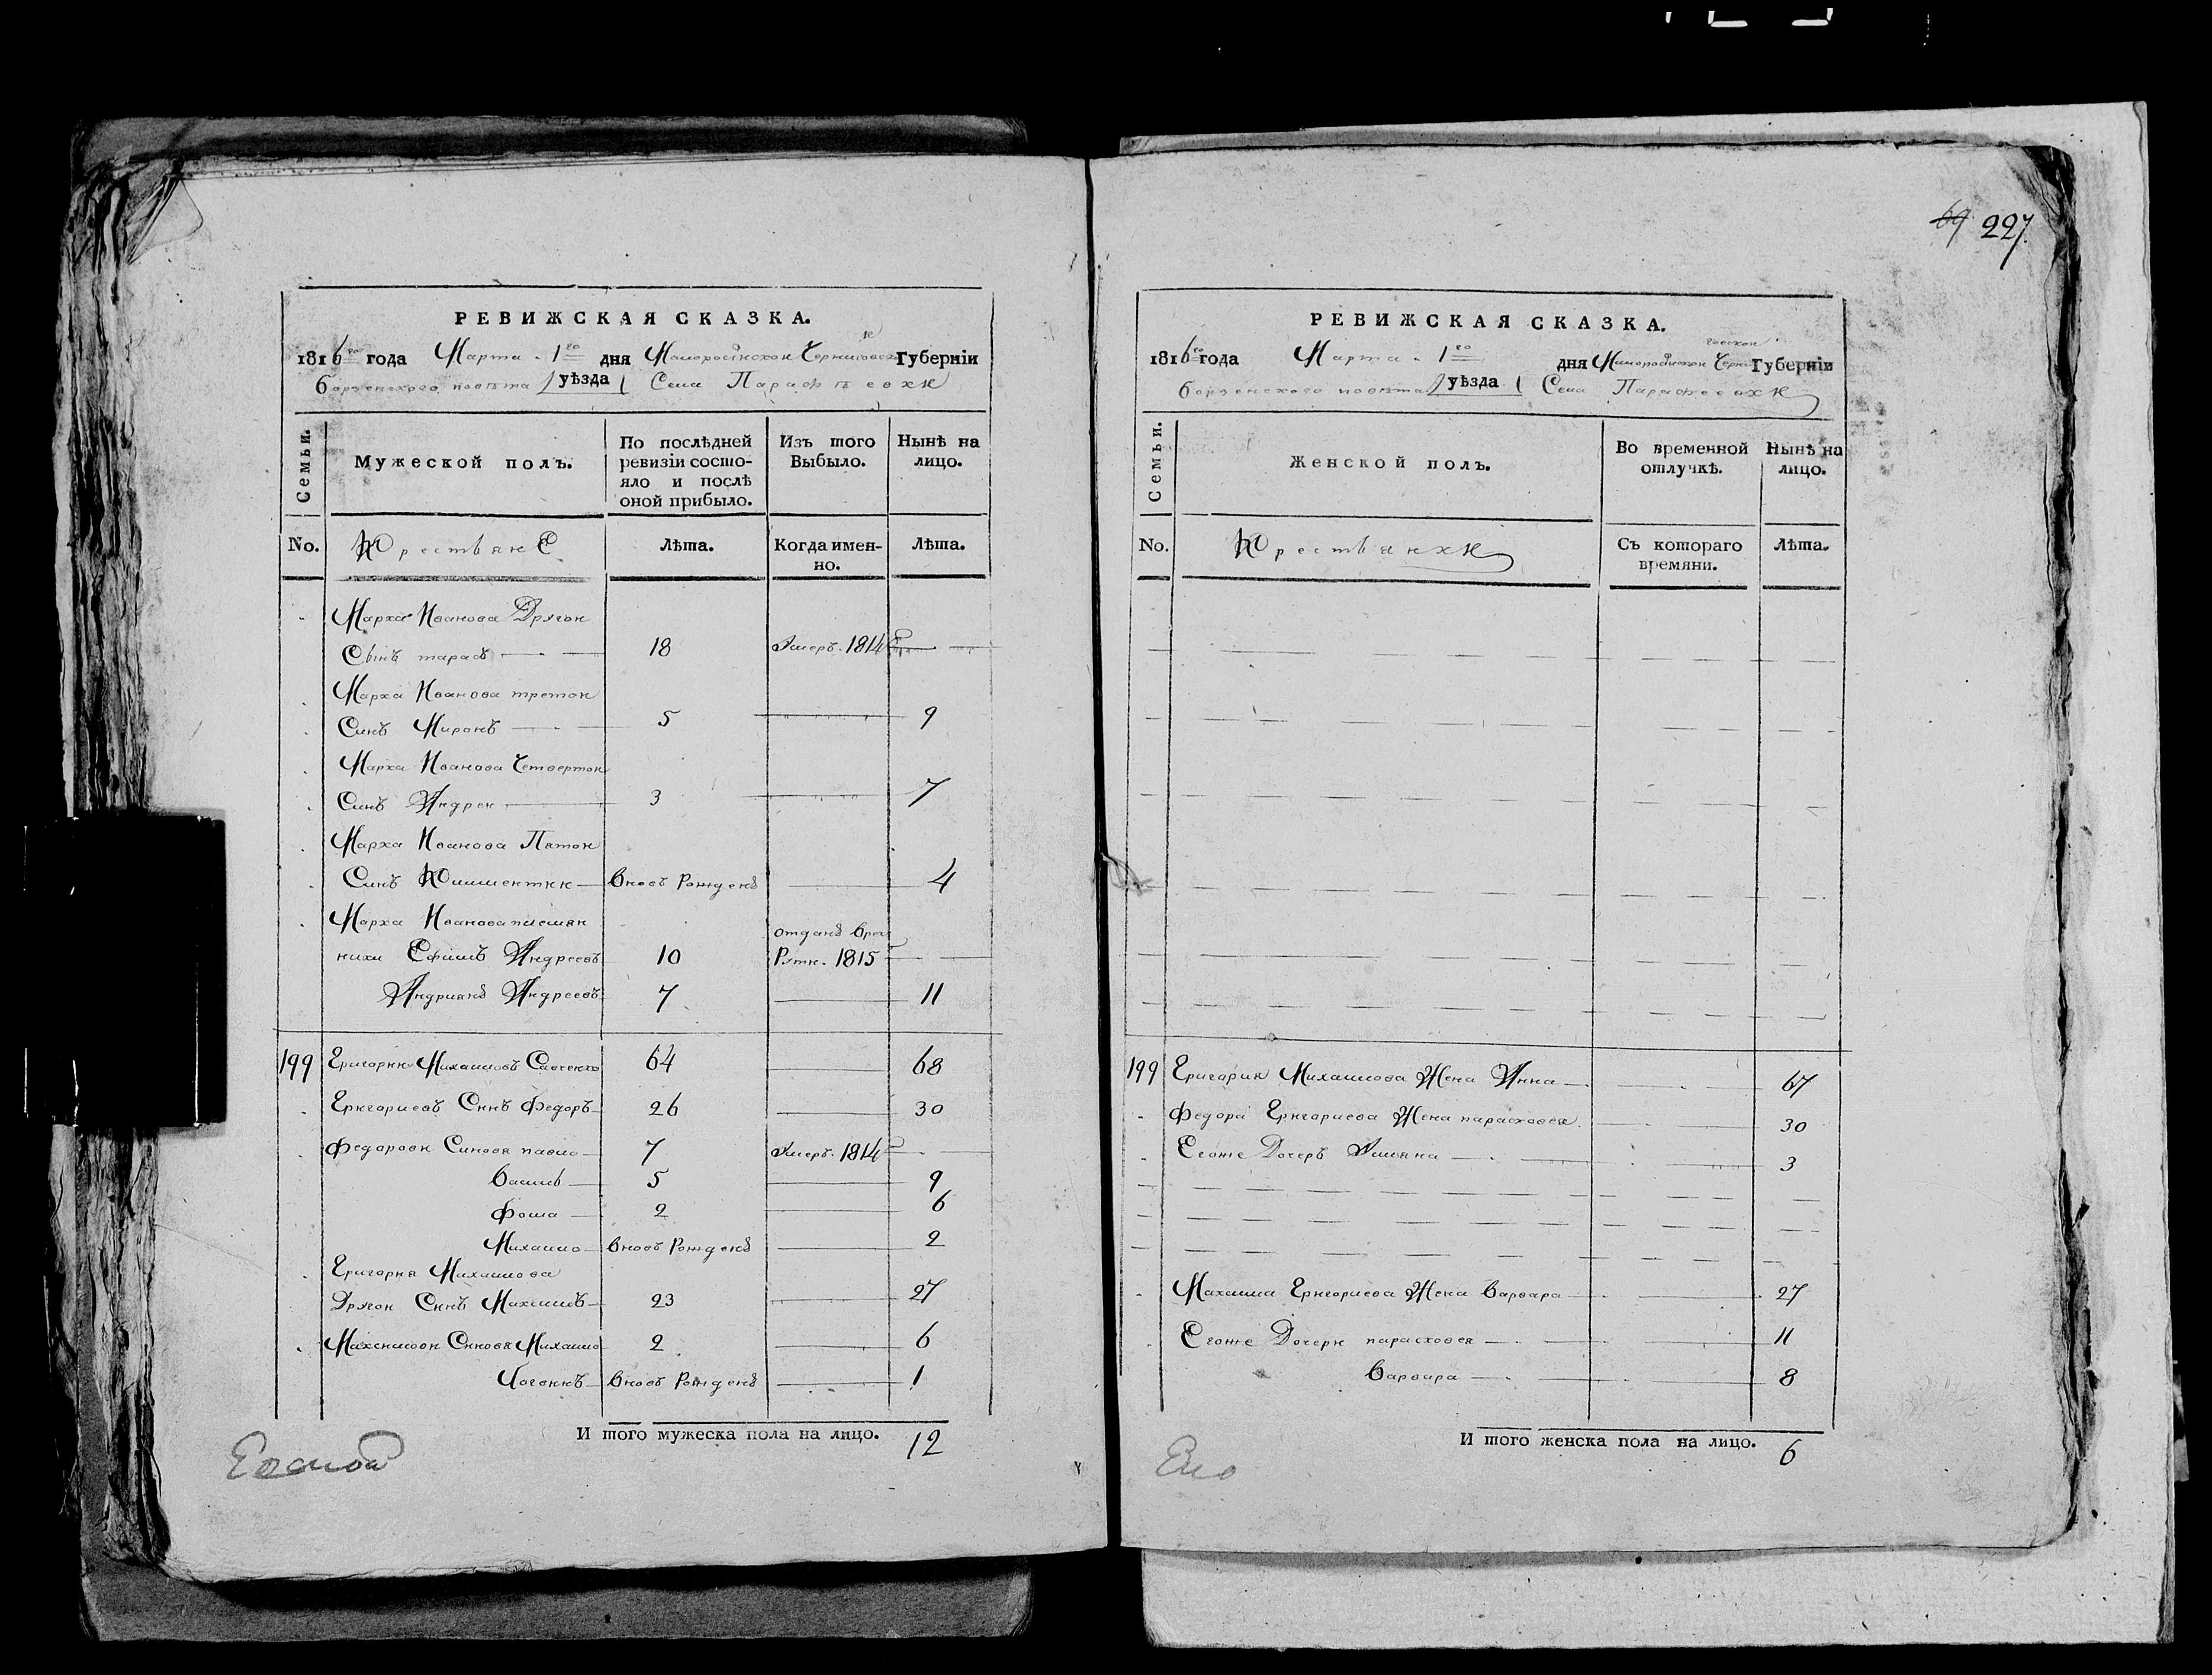 69 227
РЕВИЖСКАЯ СКАЗКА.
1816го года Марта 1го дня Малоросійской Черниговской Губерніи
борзенского повѣта уѣзда Села Парафѣевки
Семьи.
Мужеской полъ.
По послѣдней ревизіи состо-
яло и послѣ оной прибыло.
Изъ того Выбыло.
Нынѣ на лицо.
No.
Крестьяне
Лѣта.
Когда имен-
но.
Лѣта.
Марка Иванова Другой
Сынъ тарасъ 18 Умеръ 1814
Марка Иванова третой
Синъ Миронъ 5 9
Марка Иванова Четвертой
Синъ Андрей 3 7
Марка Иванова Пятой
Синъ Климентий вновь рожденъ 4
Марка Иванова племян
ники Ефимъ Андреевъ 10 отданъ врек
рути. 1815
Андриянъ Андреевъ 7 11
199 Григорий Михайловъ Савченко 64 68
Григориевъ Синъ Федоръ 26 30
Федоровы Синовя павло 7 Умеръ 1814
василь 5 9
фома 2 6
Михайло вновь рожденъ 2
Григория Михайлова
Другой Синъ Максимъ 23 27
Максимовы Синовя Михайло 2 6
вновь рожденъ 1
И того мужеска пола на лицо. 12
РЕВИЖСКАЯ СКАЗКА.
1816го года Марта 1го дня Малоросійской Черниговской Губерніи
борзенского повѣта уѣзда Села Парафеевки
Семьи.
Женской полъ.
Во временной отлучкѣ.
Нынѣ на лицо.
No.
Крестьянки
Съ котораго времяни.
Лѣта.
199 Григория Михайлова Жена Анна 67
Федора Григориева Жена парасковея 30
Егоже Дочеръ Уляна 3
Максима Григориева Жена варвара 27
Егоже Дочери парасковея 11
варвара 8
И того женска пола на лицо. 6